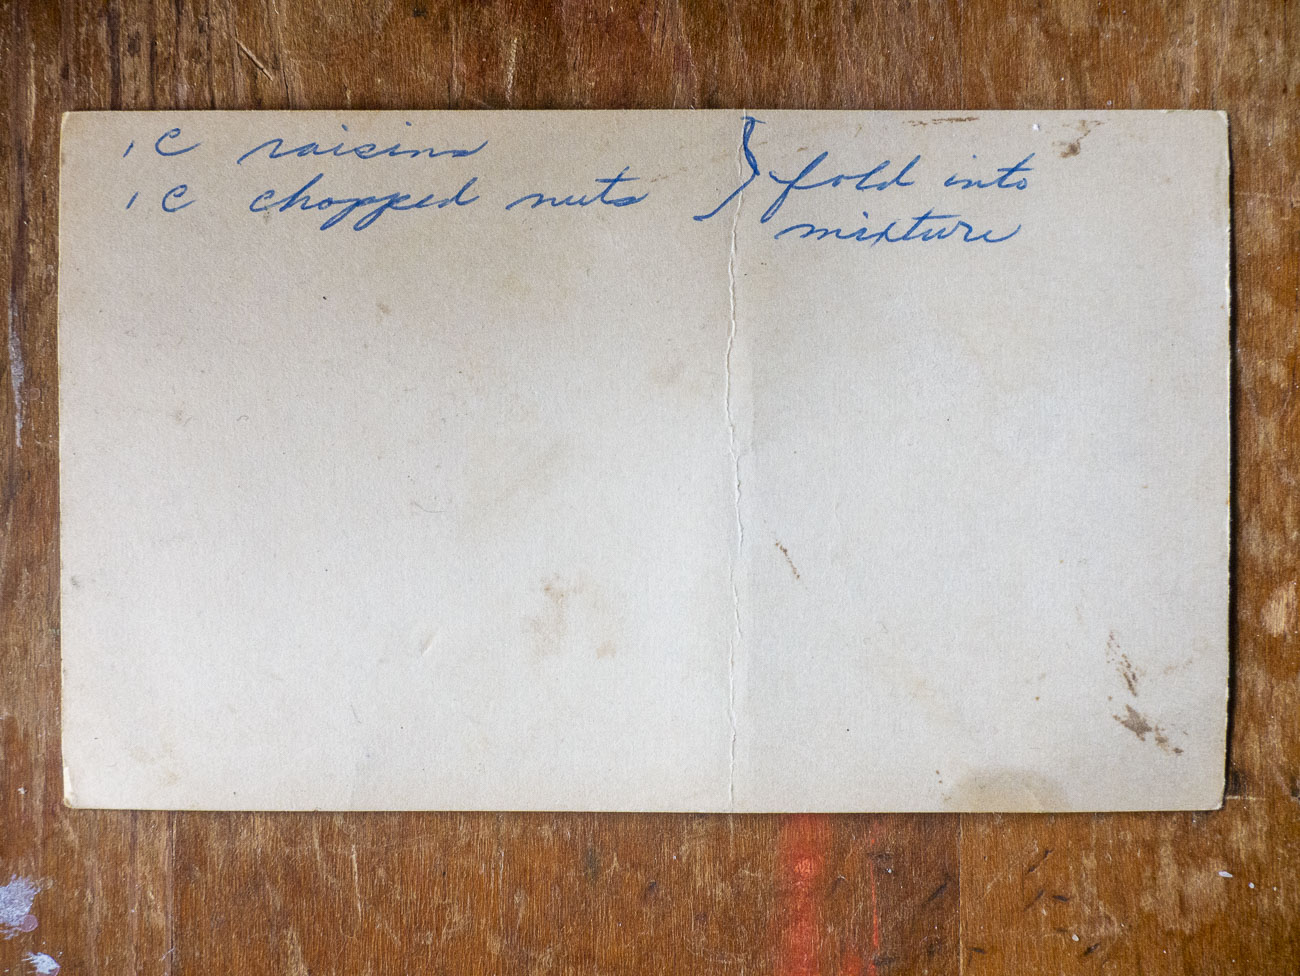 1 C raisins
1 C chopped nuts } fold into
mixture